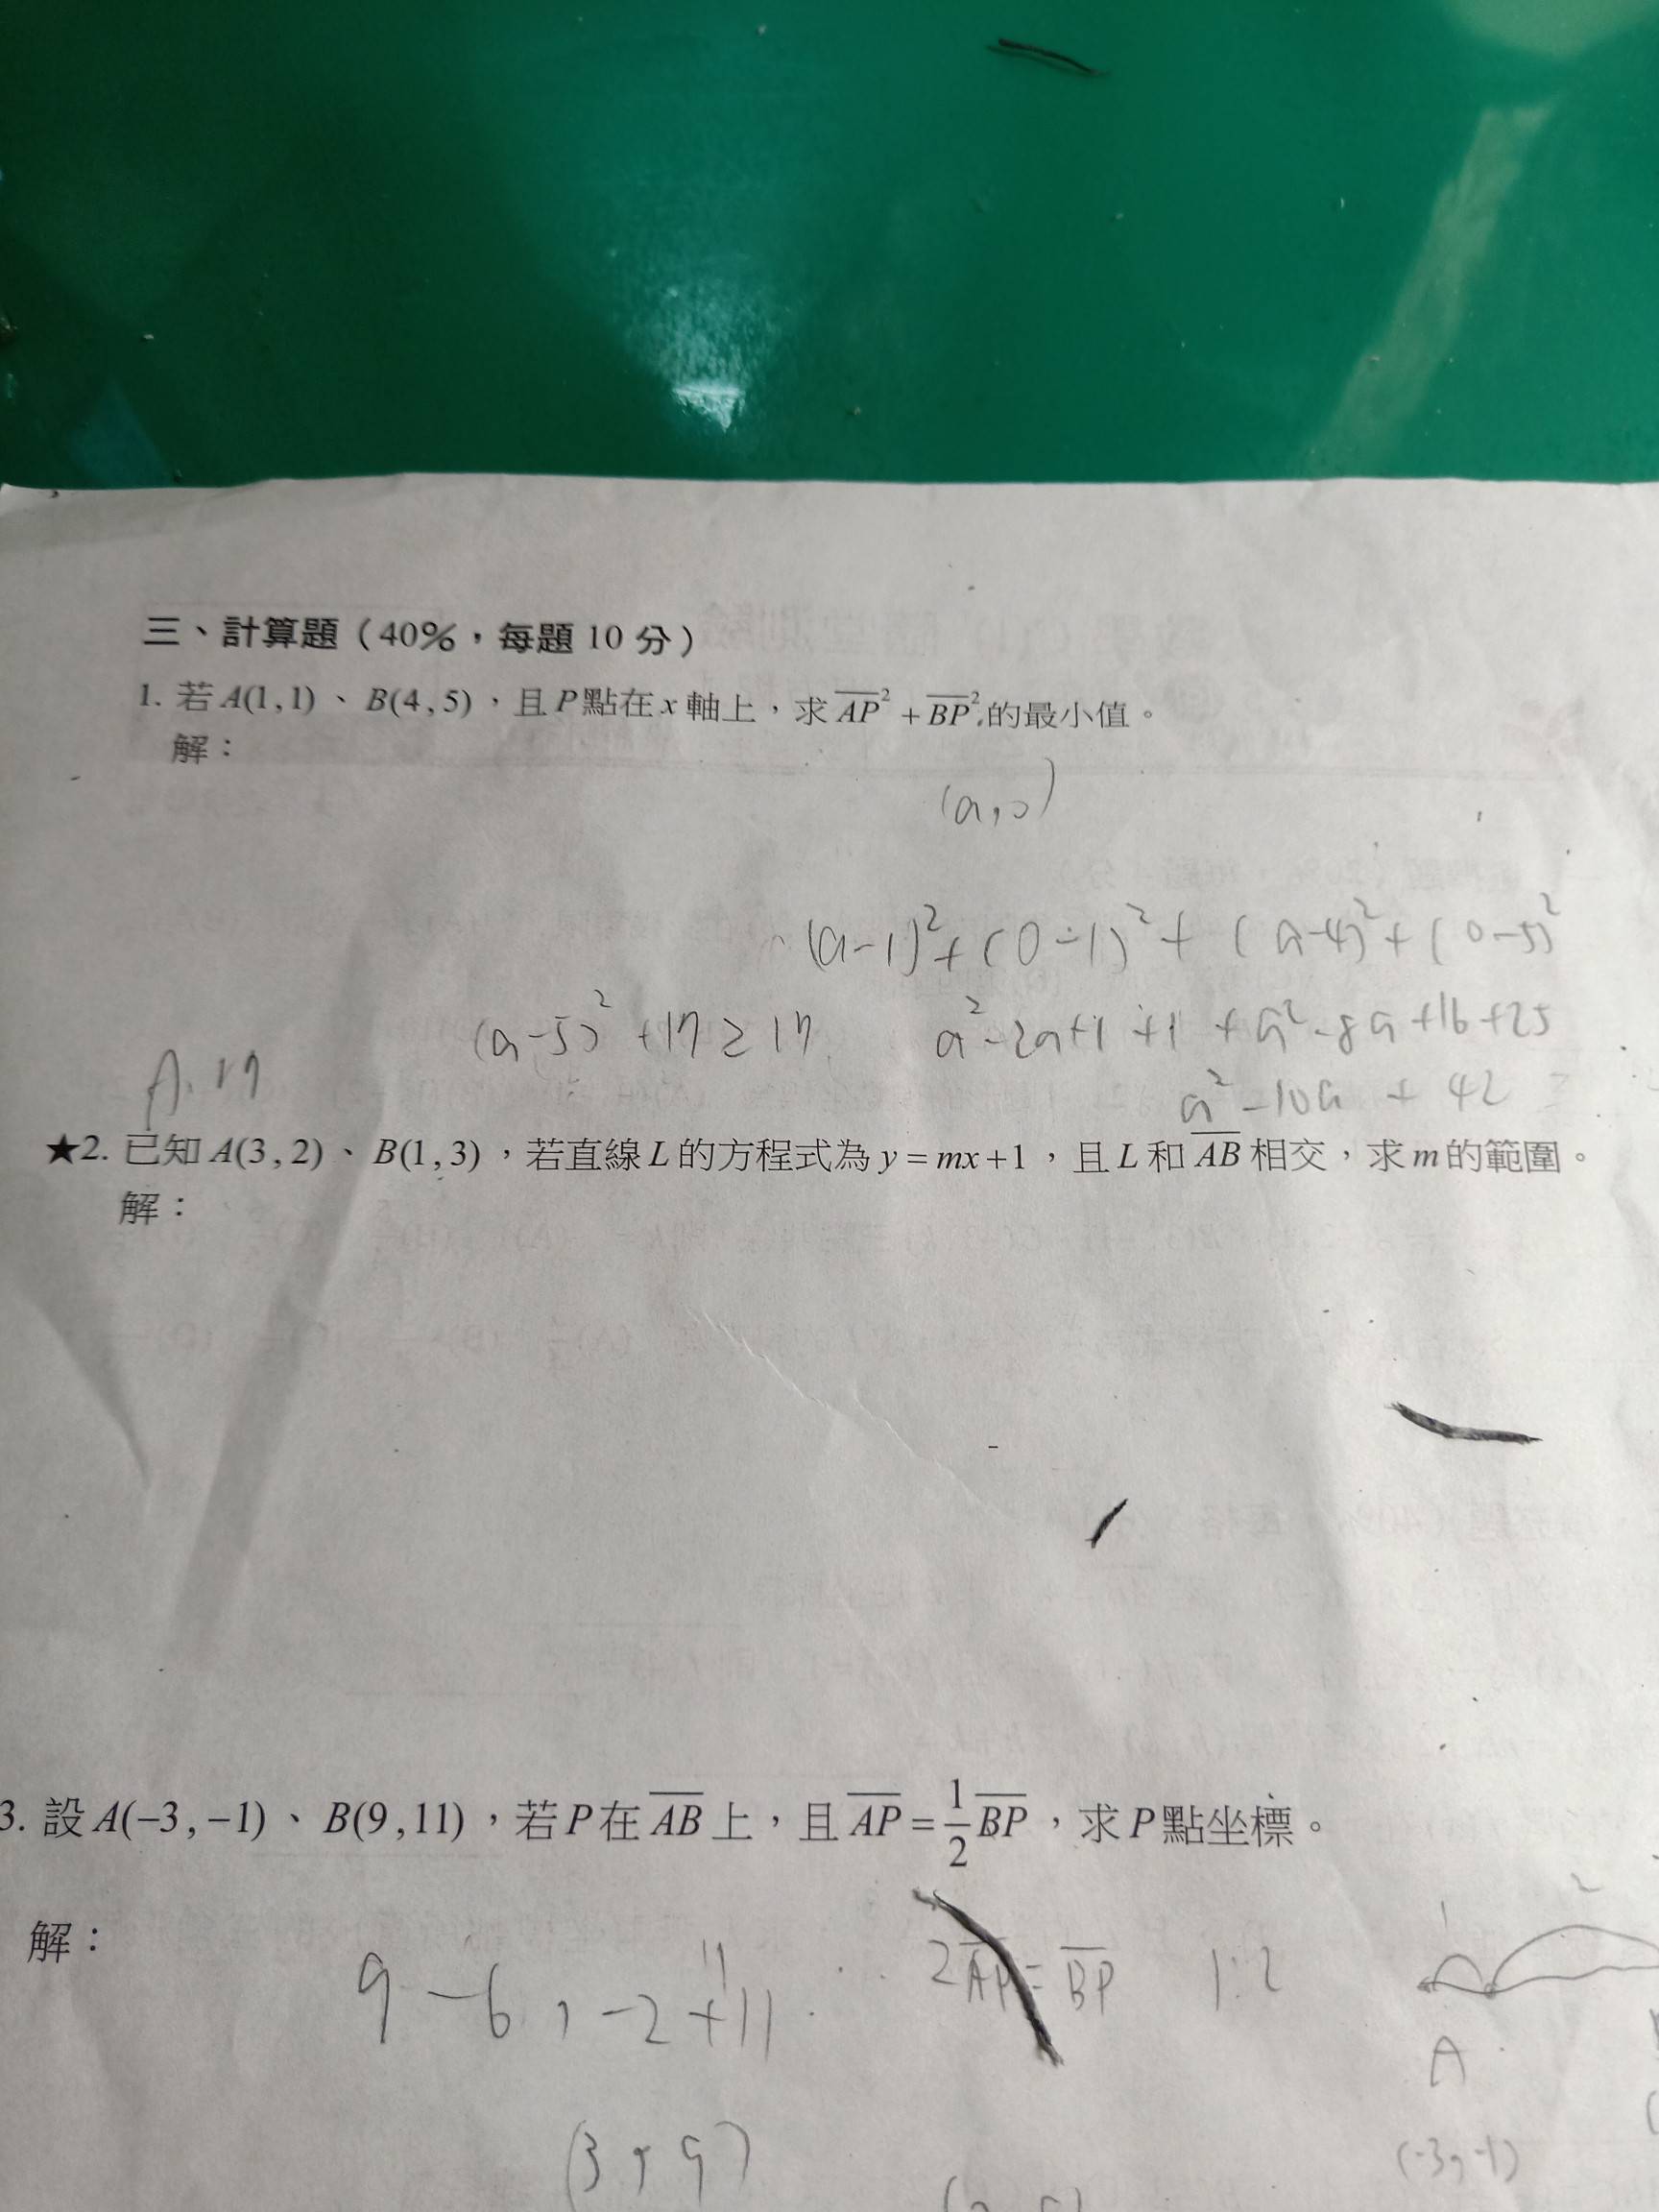 三、計算題（40%，每題 10 分）
1. 若 A(1,1)、B(4,5)，且 P 點在 x 軸上，求 \overline{AP}^2 + \overline{BP}^2 的最小值。
解：
(a,0)
(a-1)^2+(0-1)^2+(a-4)^2+(0-5)^2
(a-5)^2+17≥17 a^2-2a+1+1+a^2-8a+16+25
A.17 a^2-10a+42
★2. 已知 A(3,2)、B(1,3)，若直線 L 的方程式為 y=mx+1，且 L 和 \overline{AB} 相交，求 m 的範圍。
解：
3. 設 A(-3,-1)、B(9,11)，若 P 在 \overline{AB} 上，且 \overline{AP}=\frac{1}{2}\overline{BP}，求 P 點坐標。
解：
1 2
9-6,-2+11 2\overline{AP}=\overline{BP} 1:2
A
(3,9) (-3,-1)